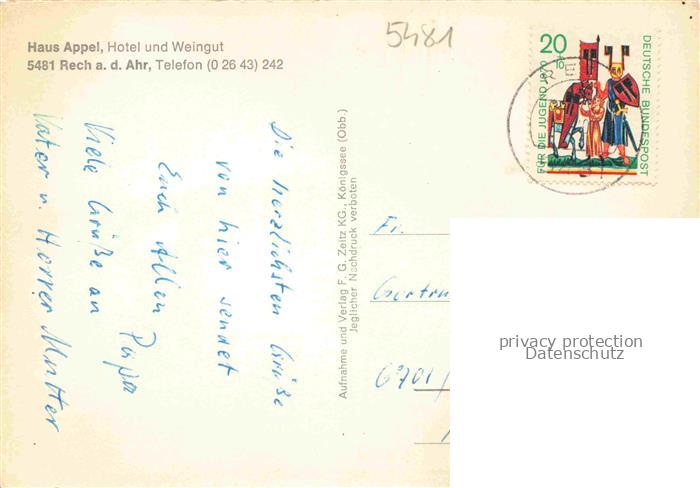 Haus Appel, Hotel und Weingut
5481 Rech a. d. Ahr, Telefon (0 26 43) 242
5481
20
+10
FÜR DIE JUGEND 1970
DEUTSCHE BUNDESPOST
Die herzlichsten Grüße
von hier sendet
Euch Allen
Papa
Viele Grüße an
Vater u. Horrer Mutter
Aufnahme und Verlag F. G. Zeitz KG., Königssee (Obb.)
Jeglicher Nachdruck verboten
Fr.
Gertru
6701/
privacy protection
Datenschutz